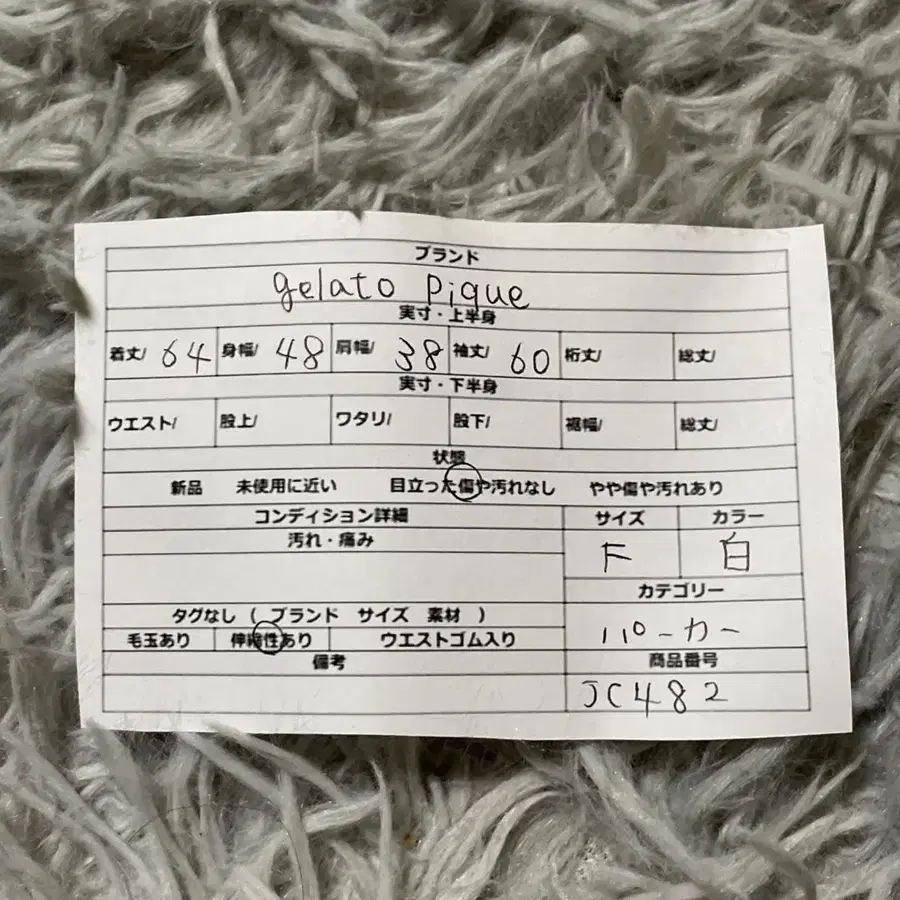 ブランド
gelato pique
実寸・上半身
着丈/ 64 身幅/ 48 肩幅/ 38 袖丈/ 60 裄丈/ 総丈/
実寸・下半身
ウエスト/ 股上/ ワタリ/ 股下/ 裾幅/ 総丈/
状態
新品 未使用に近い 目立った傷や汚れなし やや傷や汚れあり
コンディション詳細 サイズ カラー
汚れ・痛み F 白
カテゴリー
タグなし ( ブランド サイズ 素材 )
パーカー
毛玉あり 伸縮性あり ウエストゴム入り
備考 商品番号
JC482